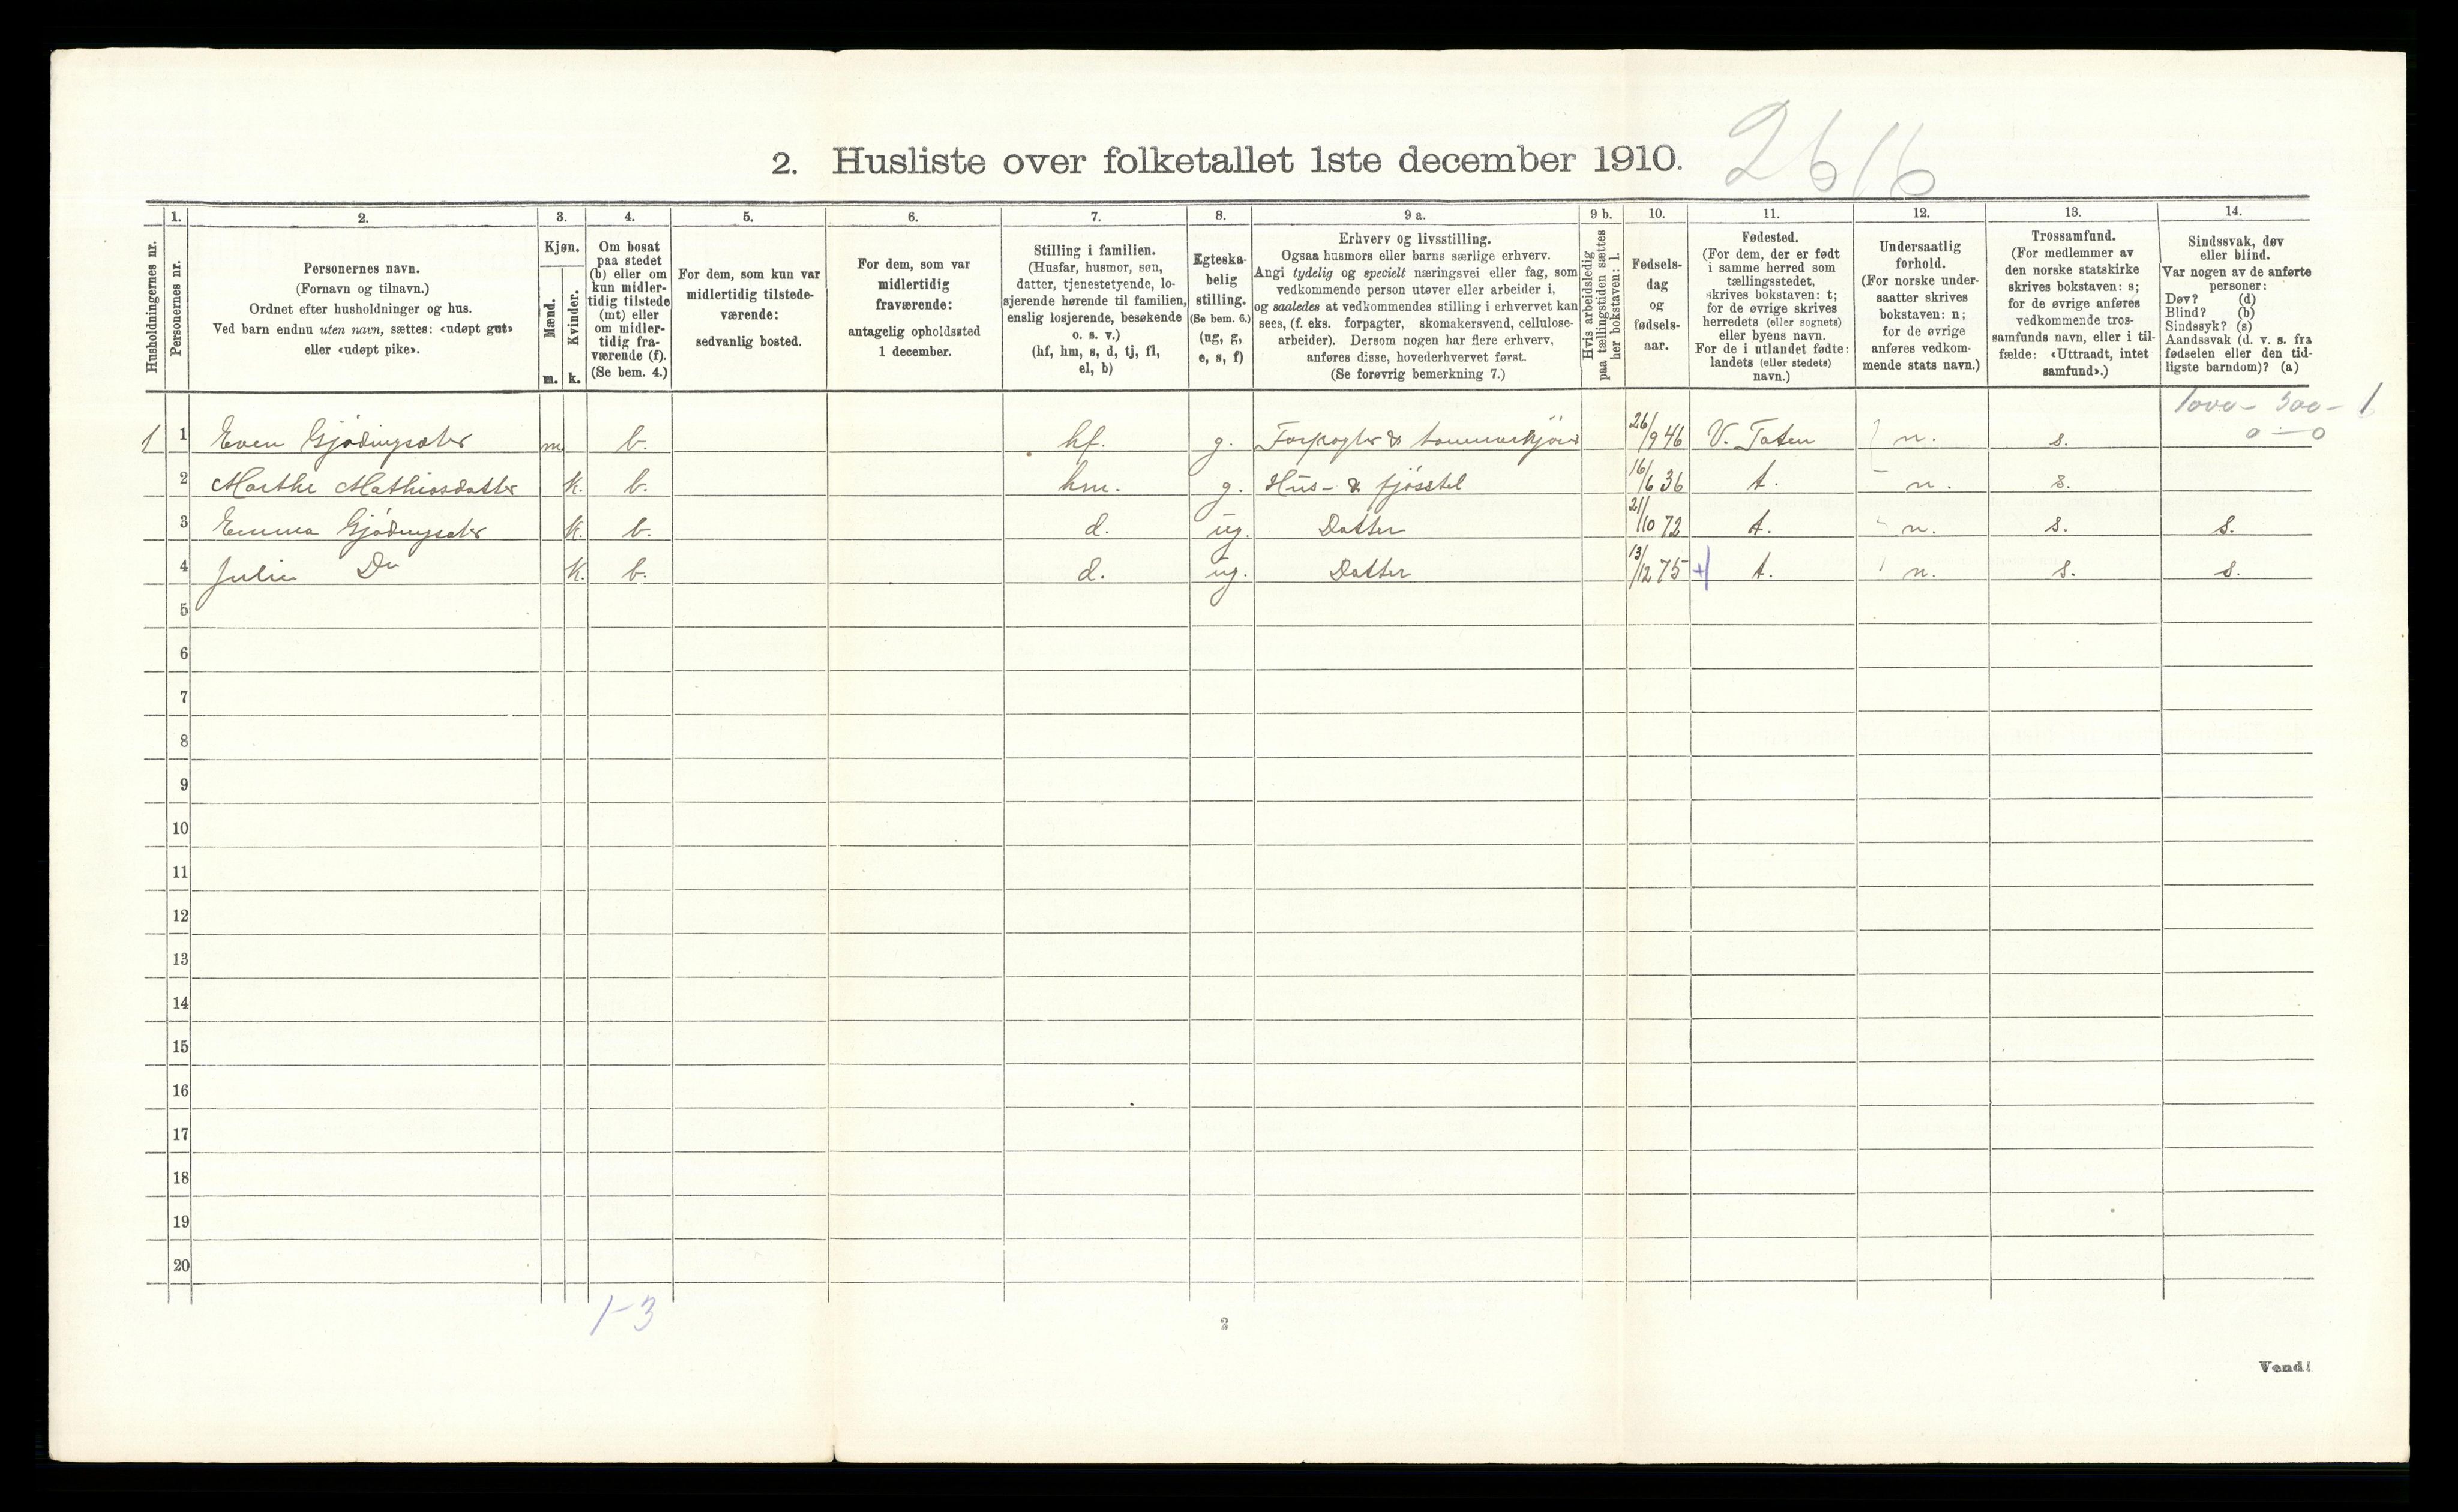 2. Husliste over folketallet 1ste december 1910.
2616
Husholdningernes nr.
1.
Personernes nr.
2.
Personernes navn.
(Fornavn og tilnavn.)
Ordnet efter husholdninger og hus.
Ved barn endnu uten navn, sættes: «udøpt gut»
eller «udøpt pike».
3.
Kjøn.
Mænd.
Kvinder.
m. k.
4.
Om bosat
paa stedet
(b) eller om
kun midler-
tidig tilstede
(mt) eller
om midler-
tidig fra-
værende (f).
(Se bem. 4.)
5.
For dem, som kun var
midlertidig tilstede-
værende:
sedvanlig bosted.
6.
For dem, som var
midlertidig
fraværende:
antagelig opholdssted
1 december.
7.
Stilling i familien.
(Husfar, husmor, søn,
datter, tjenestetyende, lo-
sjerende hørende til familien,
enslig losjerende, besøkende
o. s. v.)
(hf, hm, s, d, tj, fl,
el, b)
8.
Egteska-
belig
stilling.
(Se bem. 6.)
(ug, g,
e, s, f)
9 a.
Erhverv og livsstilling.
Ogsaa husmors eller barns særlige erhverv.
Angi tydelig og specielt næringsvei eller fag, som
vedkommende person utøver eller arbeider i,
og saaledes at vedkommendes stilling i erhvervet kan
sees, (f. eks. forpagter, skomakersvend, cellulose-
arbeider). Dersom nogen har flere erhverv,
anføres disse, hovederhvervet først.
(Se forøvrig bemerkning 7.)
9 b.
Hvis arbeidsledig
paa tællingstiden sættes
her bokstaven: l.
10.
Fødsels-
dag
og
fødsels-
aar.
11.
Fødested.
(For dem, der er født
i samme herred som
tællingsstedet,
skrives bokstaven: t;
for de øvrige skrives
herredets (eller sognets)
eller byens navn.
For de i utlandet fødte:
landets (eller stedets)
navn.)
12.
Undersaatlig
forhold.
(For norske under-
saatter skrives
bokstaven: n;
for de øvrige
anføres vedkom-
mende stats navn.)
13.
Trossamfund.
(For medlemmer av
den norske statskirke
skrives bokstaven: s;
for de øvrige anføres
vedkommende tros-
samfunds navn, eller i til-
fælde: «Uttraadt, intet
samfund».)
14.
Sindssvak, døv
eller blind.
Var nogen av de anførte
personer:
Døv? (d)
Blind? (b)
Sindssyk? (s)
Aandssvak (d. v. s. fra
fødselen eller den tid-
ligste barndom)? (a)
1000 - 300 - 1
0 — 0
1 1 Even Gjødingsæter m. b. hf. g. Forpagter & tømmerkjører 26/9 46 V. Toten n. s.
2 Marthe Mathiasdatter k. b. hm. g. Hus- & fjøsstel 16/6 36 t. n. s.
3 Emma Gjødingsæter k. b. d. ug. Datter 21/10 72 t. n. s. s.
4 Julie Do k. b. d. ug. Datter 13/12 75 + t. n. s. s.
5
6
7
8
9
10
11
12
13
14
15
16
17
18
19
20
1-3
2
Vend!